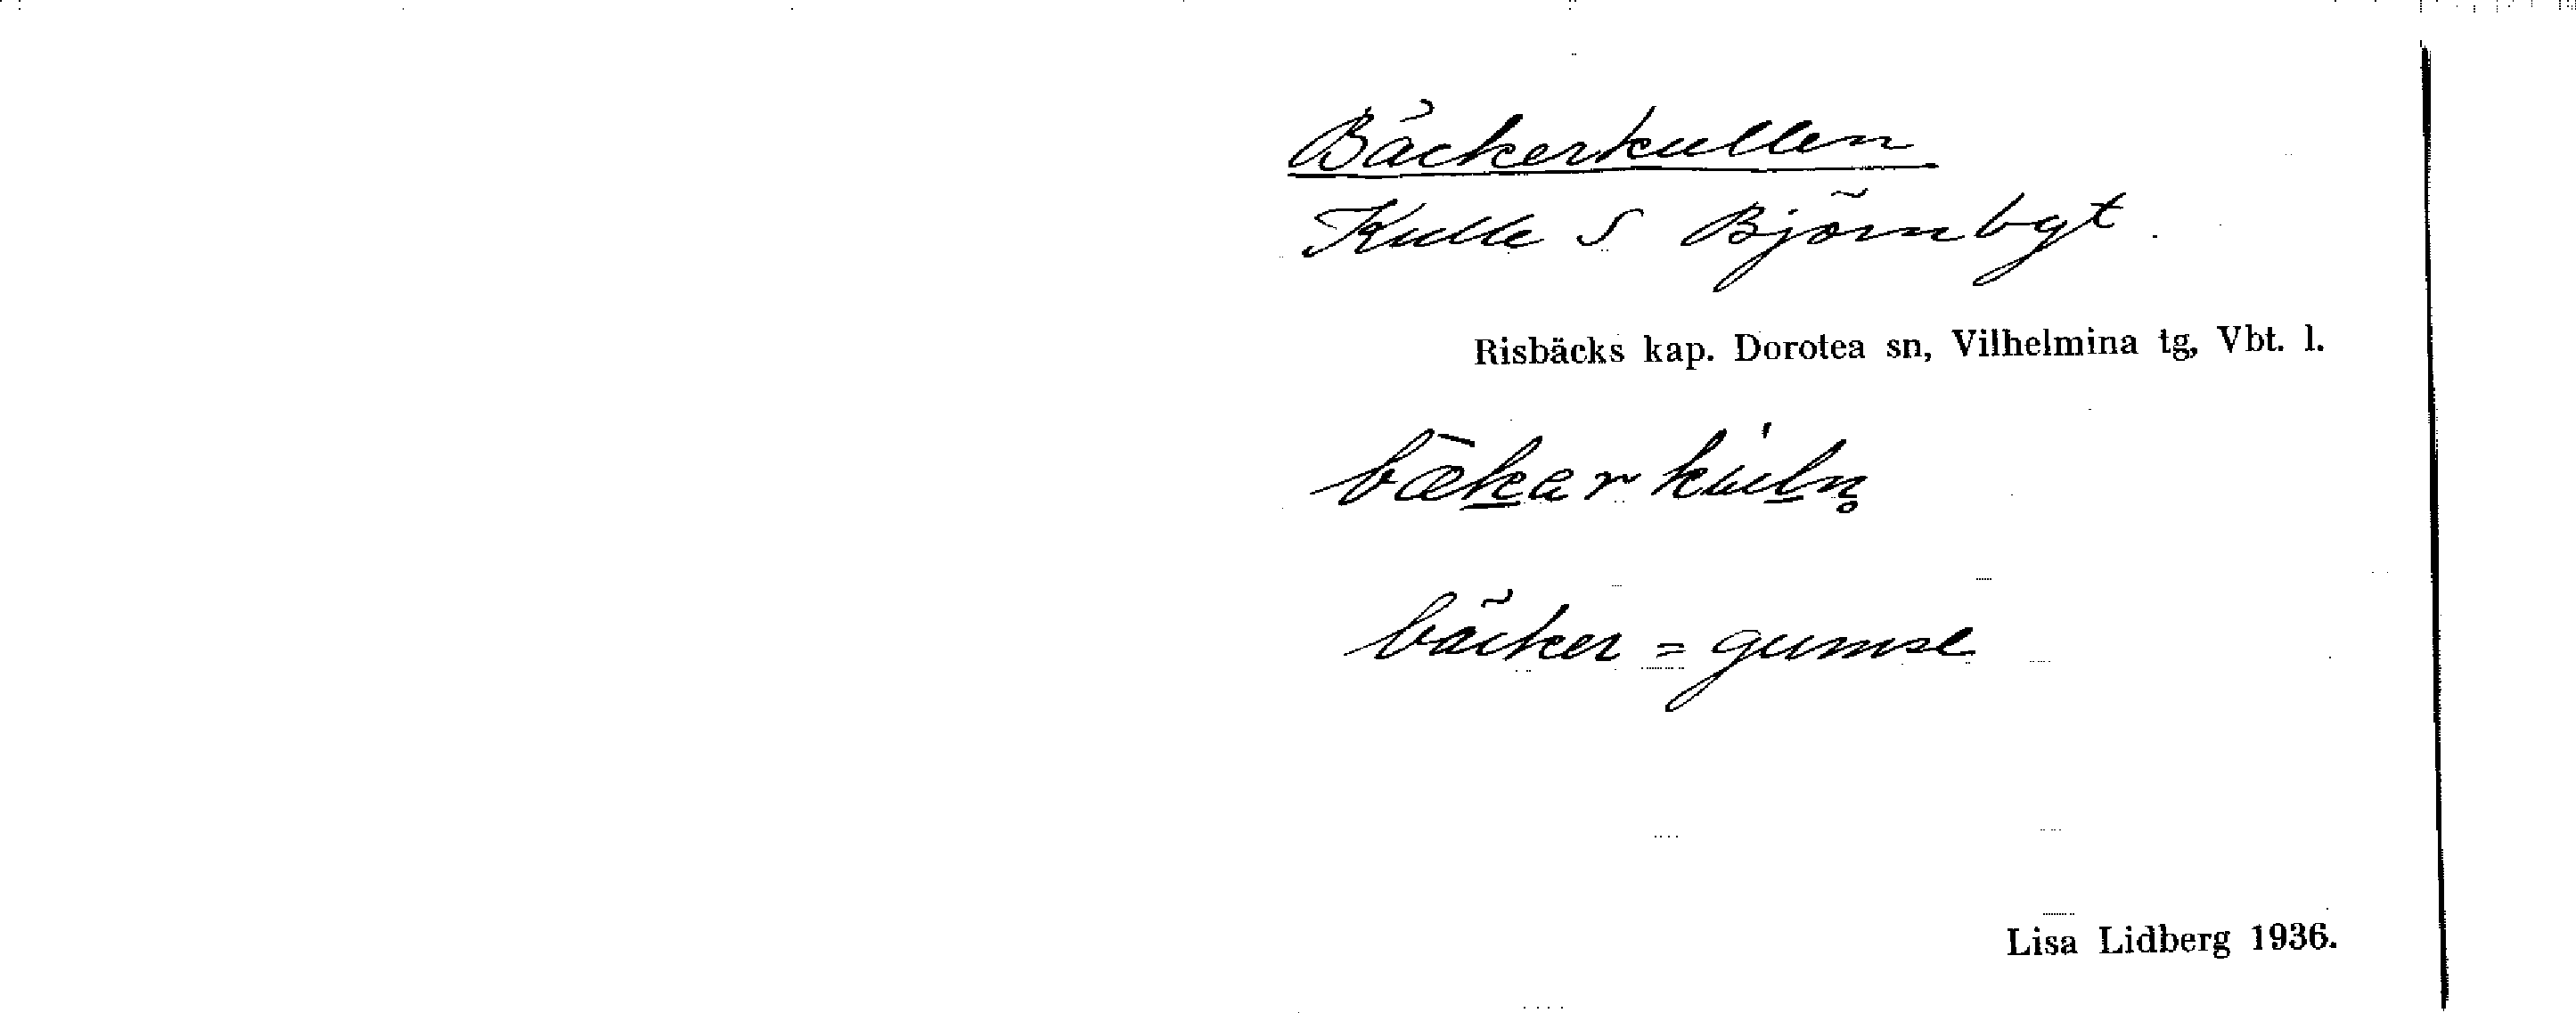 Bäckerkullen
Kulle S Björnbgt.
Risbäcks kap. Dorotea sn, Vilhelmina tg, Vbt. l.
bækarkúln̥
bäcker = gumse
Lisa Lidberg 1936.